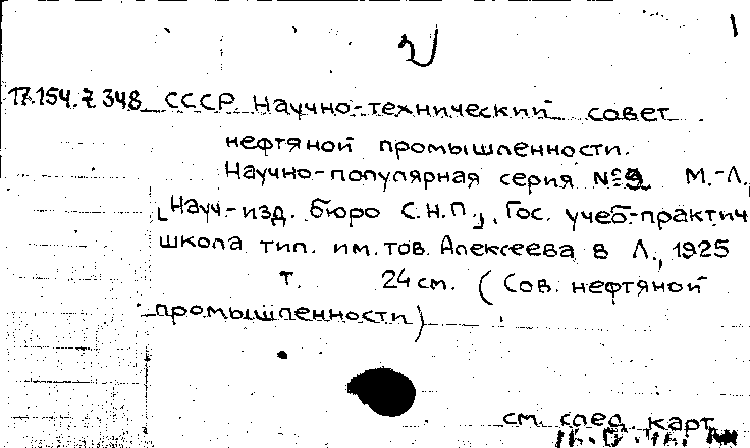 17.154.7.348 СССР. Научно-технический совет
нефтяной промышленности.
Научно-популярная серия №9 М.-Л.,
[Науч-изд. бюро С.Н.П.], Гос. учеб-практич
школа тип. им. тов. Алексеева в Л., 1925
т. 24 см. (Сов. нефтяной
промышленности)
см. след. карт.